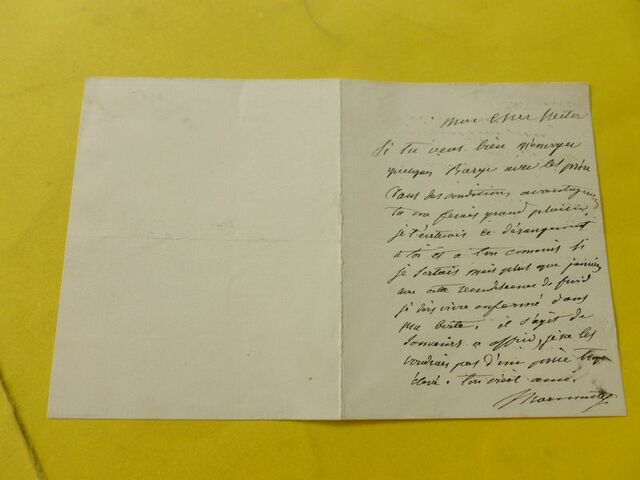 Mon cher Hector
Si tu veux bien m'envoyer
quelques Barye avec les prix
dans des conditions avantageuses
tu me ferais grand plaisir,
je t'éviterais ce dérangement
à toi et à ton commis si
je sortais mais plus que jamais
avec cette recrudescence de froid
je dois vivre enfermé dans
ma boîte. il s'agit de
souvenirs a offrir, je ne les
voudrais pas d'un prix trop
élevé. ton vieil ami